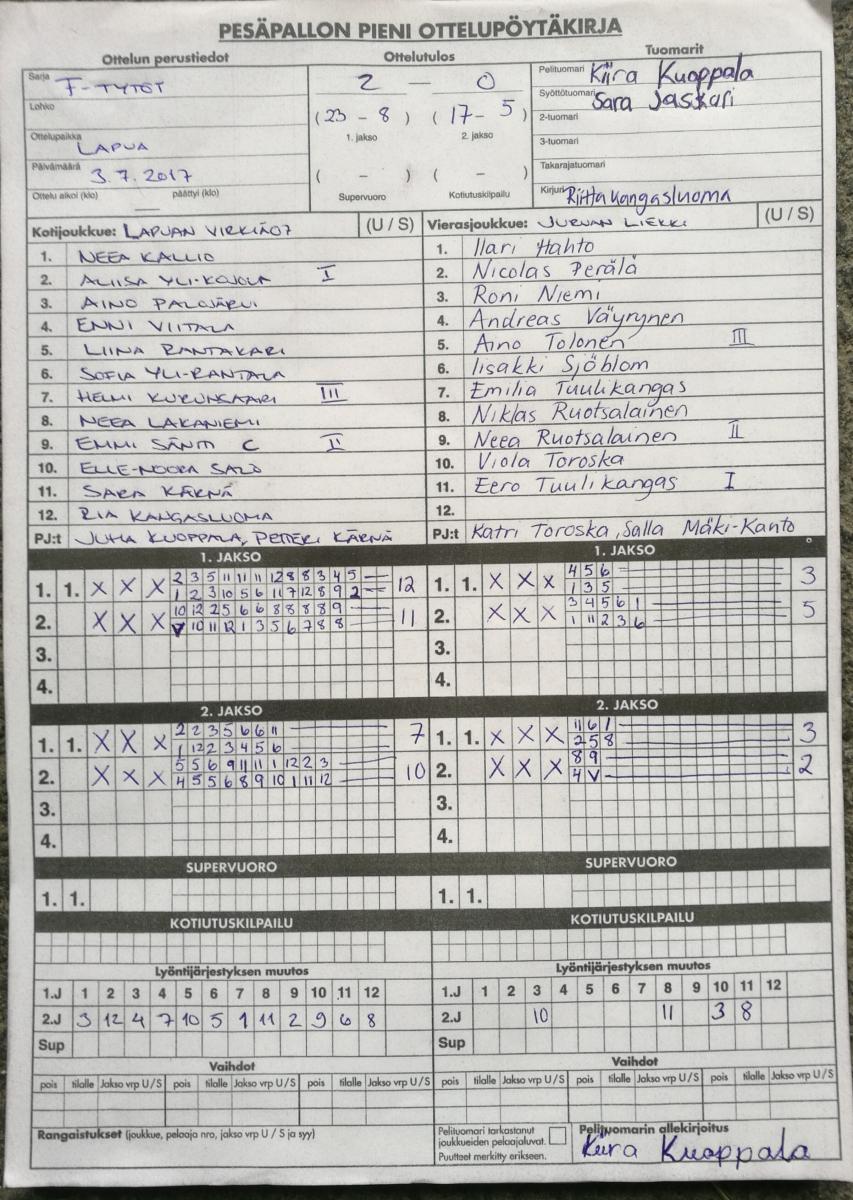 PESÄPALLON PIENI OTTELUPÖYTÄKIRJA
Ottelun perustiedot
Sarja F-TYTÖT
Lohko
Ottelupaikka LAPUA
Päivämäärä 3.7.2017
Ottelu alkoi (klo) päättyi (klo)
—
Ottelutulos
2 — 0
(23 - 8) (17 - 5)
1. jakso 2. jakso
( - ) ( - )
Supervuoro Kotiutuskilpailu
Tuomarit
Pelituomari Kiira Kuoppala
Syöttötuomari Sara Jaskari
2-tuomari
3-tuomari
Takarajatuomari
Kirjuri Riitta Kangasluoma
Kotijoukkue: LAPUAN VIRKIÄ07 (U / S)
1. NEEA KALLIO
2. ALIISA YLI-KOJOLA I
3. AINO PALOJÄRVI
4. ENNI VIITALA
5. LIINA RANTAKARI
6. SOFIA YLI-RANTALA
7. HELMI KURUNSAARI III
8. NEEA LAKANIEMI
9. EMMI SÄNTTI C II
10. ELLE-NOORA SALO
11. SARA KÄRNÄ
12. RIA KANGASLUOMA
PJ:t JUHA KUOPPALA, PETTERI KÄRNÄ
Vierasjoukkue: JURVAN LIEKKI (U / S)
1. Ilari Hahto
2. Nicolas Perälä
3. Roni Niemi
4. Andreas Väyrynen
5. Aino Tolonen III
6. Iisakki Sjöblom
7. Emilia Tuulikangas
8. Niklas Ruotsalainen
9. Neea Ruotsalainen II
10. Viola Toroska
11. Eero Tuulikangas I
12.
PJ:t Katri Toroska, Salla Mäki-Kanto
1. JAKSO
1. 1. X X X 2 3 5 11 11 11 12 8 8 3 4 5 12
1 2 3 10 5 6 11 7 12 8 9 2
2. X X X 10 12 2 5 6 6 8 8 8 8 9 11
V 10 11 12 1 3 5 6 7 8 8
3.
4.
1. JAKSO
1. 1. X X X 4 5 6 3
1 3 5
2. X X X 3 4 5 6 1 5
1 11 2 3 6
3.
4.
2. JAKSO
1. 1. X X X 2 2 3 5 6 6 11 7
1 12 2 3 4 5 6
2. X X X 5 5 6 9 11 11 1 12 2 3 10
4 5 5 6 8 9 10 1 11 12
3.
4.
2. JAKSO
1. 1. X X X 11 6 1 3
2 5 8
2. X X X 8 9 2
4 V
3.
4.
SUPERVUORO
1. 1.
SUPERVUORO
1. 1.
KOTIUTUSKILPAILU
KOTIUTUSKILPAILU
Lyöntijärjestyksen muutos
1.J 1 2 3 4 5 6 7 8 9 10 11 12
2.J 3 12 4 7 10 5 1 11 2 9 6 8
Sup
Lyöntijärjestyksen muutos
1.J 1 2 3 4 5 6 7 8 9 10 11 12
2.J 10 11 3 8
Sup
Vaihdot
pois tilalle Jakso vrp U / S pois tilalle Jakso vrp U / S pois tilalle Jakso vrp U / S
Vaihdot
pois tilalle Jakso vrp U / S pois tilalle Jakso vrp U / S pois tilalle Jakso vrp U / S
Rangaistukset (joukkue, pelaaja nro, jakso vrp U / S ja syy)
Pelituomari tarkastanut
joukkueiden pelaajaluvat.
Puutteet merkitty erikseen.
Pelituomarin allekirjoitus
Kiira Kuoppala